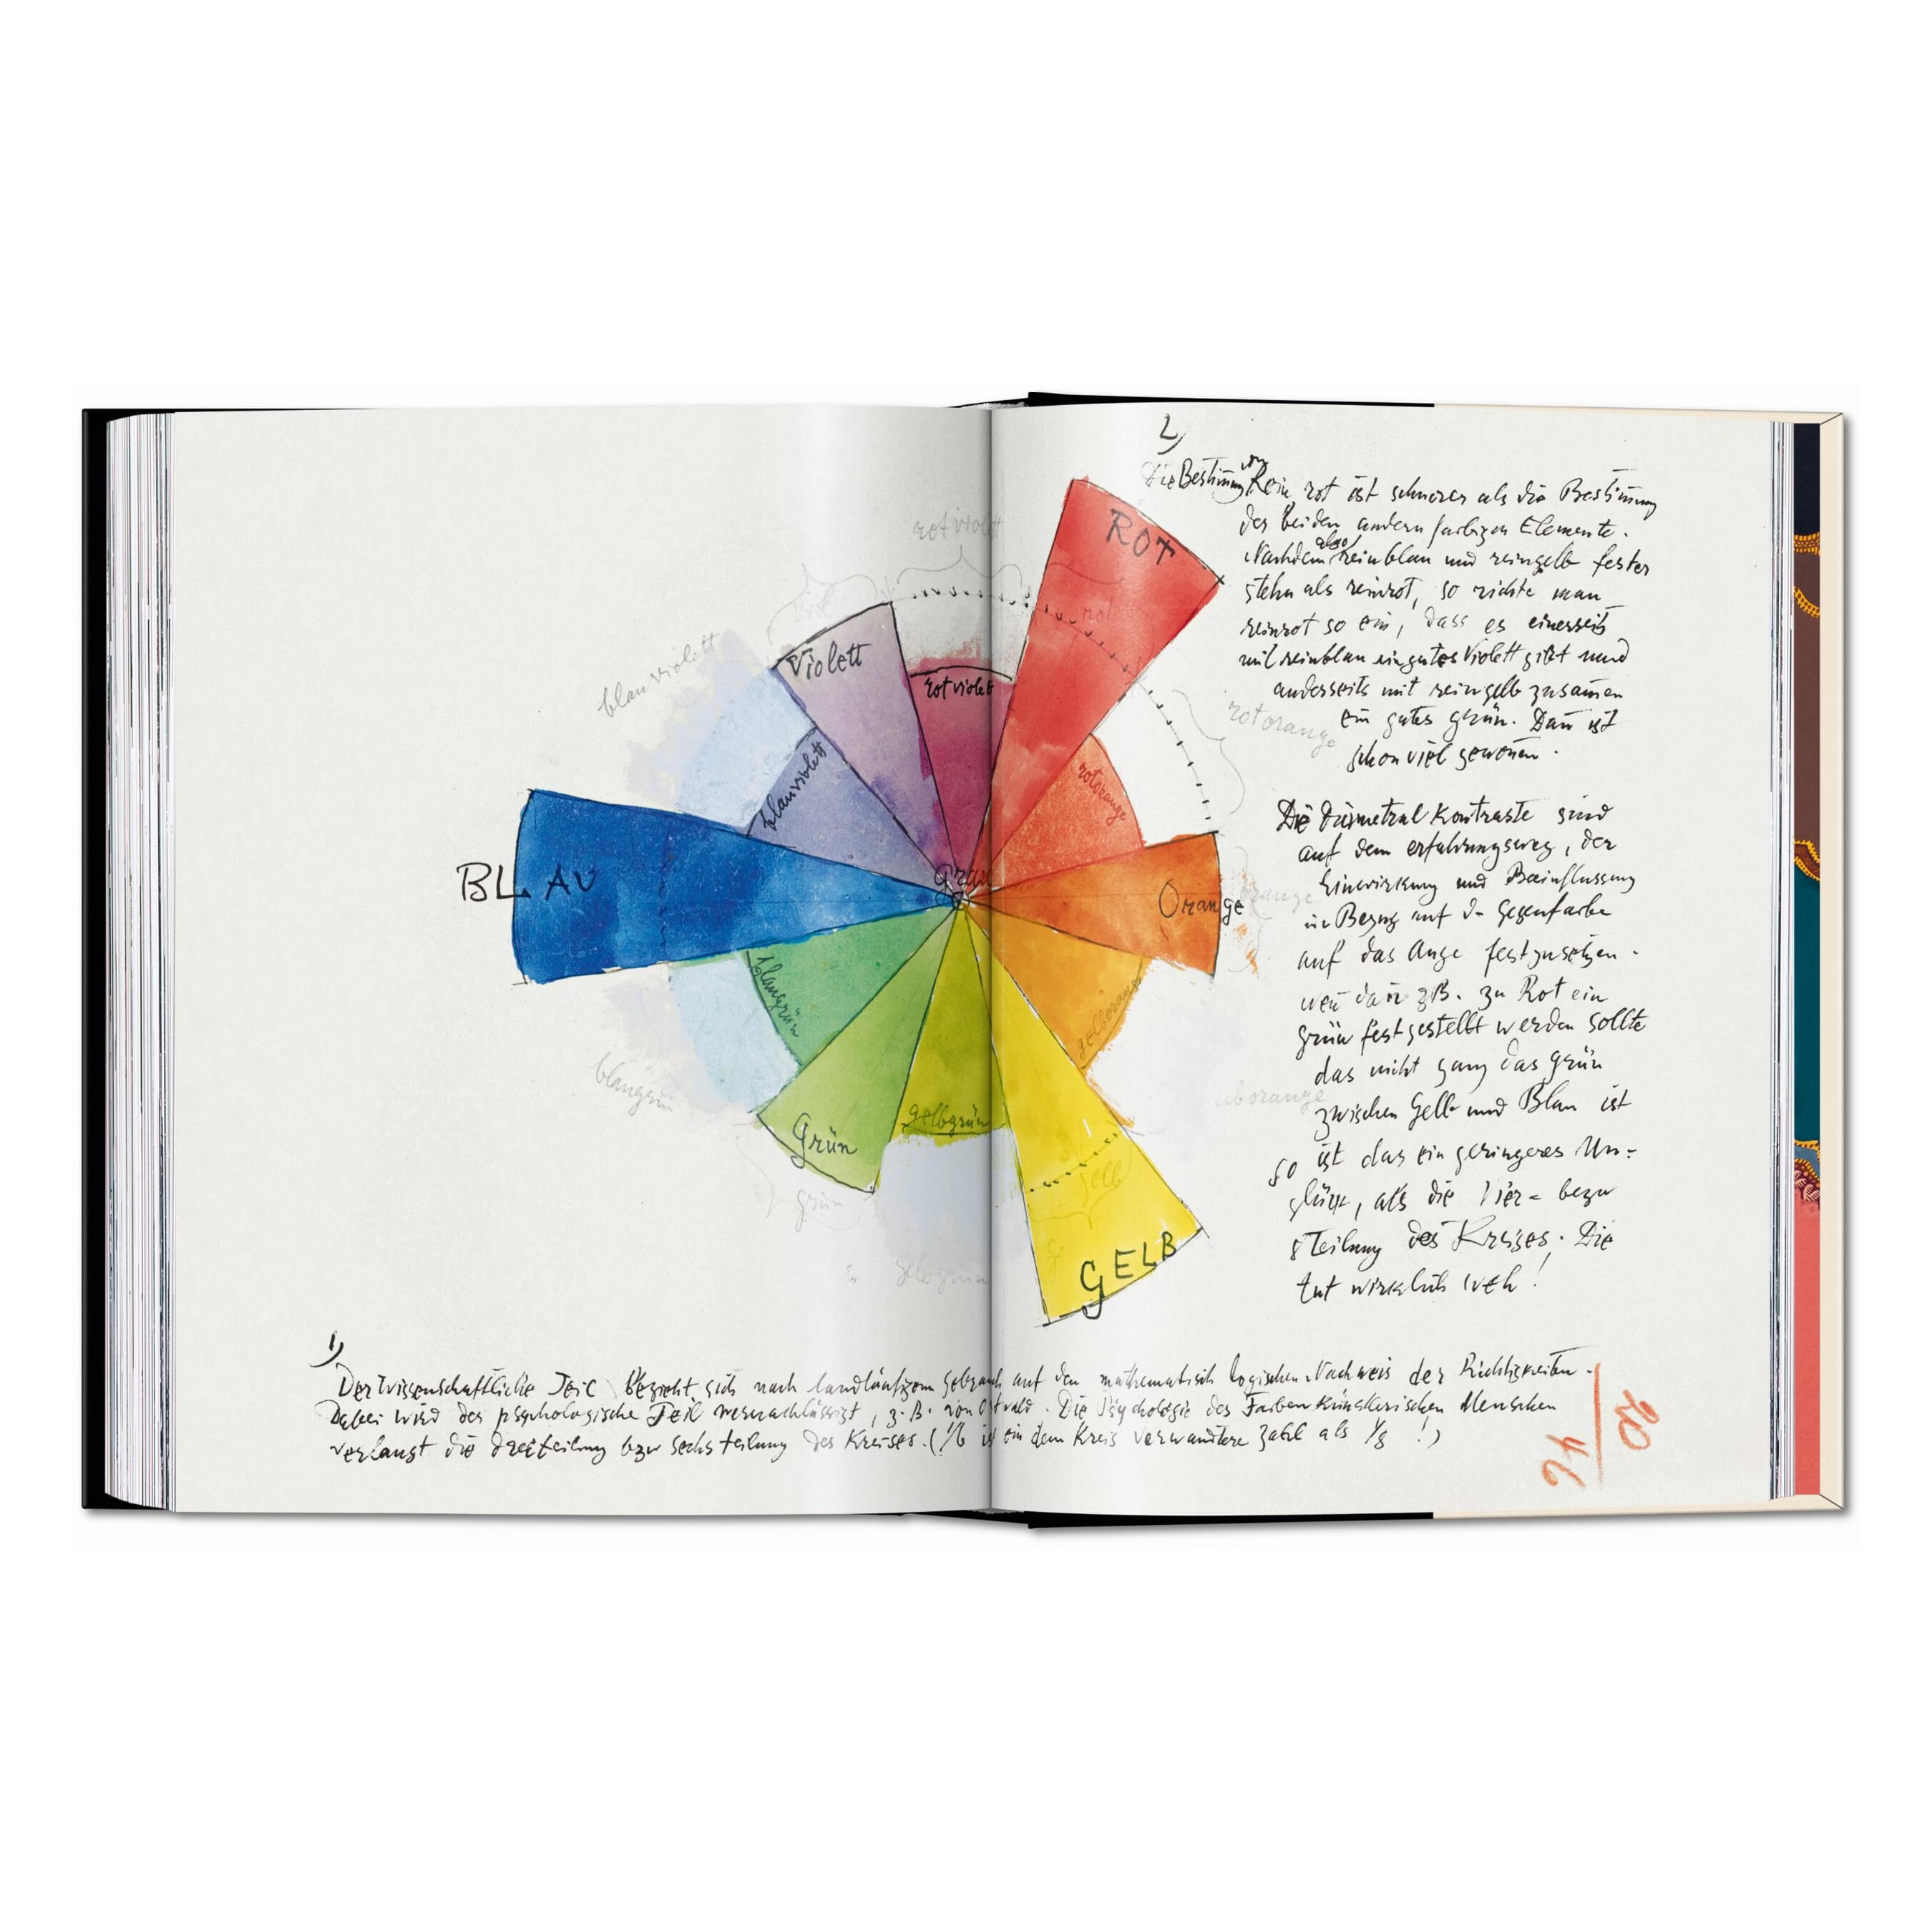 rotviolett
ROT
rot
Violett
rotviolet
blauviolett
blauviolett
rotorange
rotorange
BLAU
Grau
Orange
orange
blaugrün
gelborange
blaugrün
gelbgrün
Grün
grün
gelb
gelbgrün
GELB
2)
Die Bestimung von Rein rot ist schwerer als die Bestimung
der beiden andern farbigen Elemente.
Nachdem also reinblau und reingelb fester
stehn als reinrot, so richte man
reinrot so ein, dass es einerseits
mit reinblau ein gutes Violett gibt und
anderseits mit reingelb zusamen
ein gutes grün. Dan ist
schon viel gewonen.
Die diametral Kontraste sind
auf dem erfahrungsweg, der
Einwirkung und Beeinflussung
in Bezug auf d- Gegenfarbe
auf das Auge festzusetzen.
wen dan zB. zu Rot ein
grün festgestellt werden sollte
das nicht ganz das grün
zwischen Gelb und Blau ist
so ist das ein geringeres Un=
glück, als die Vier= bezw
8teilung des Kreises. Die
tut wirklich weh!
1)
Der Wissenschaftliche Teil bezieht sich nach landläufigem gebrauch auf den mathematisch logischen Nachweis der Richtigkeiten.
Dabei wird der psychologische Teil vernachlässigt, z.B. von Ostwald. Die Psychologie des Farbenkünstlerischen Menschen
verlangt die dreiteilung bzw sechsteilung des Kreises. (1/6 ist ein dem Kreis verwandtere Zahl als 1/8 !)
20